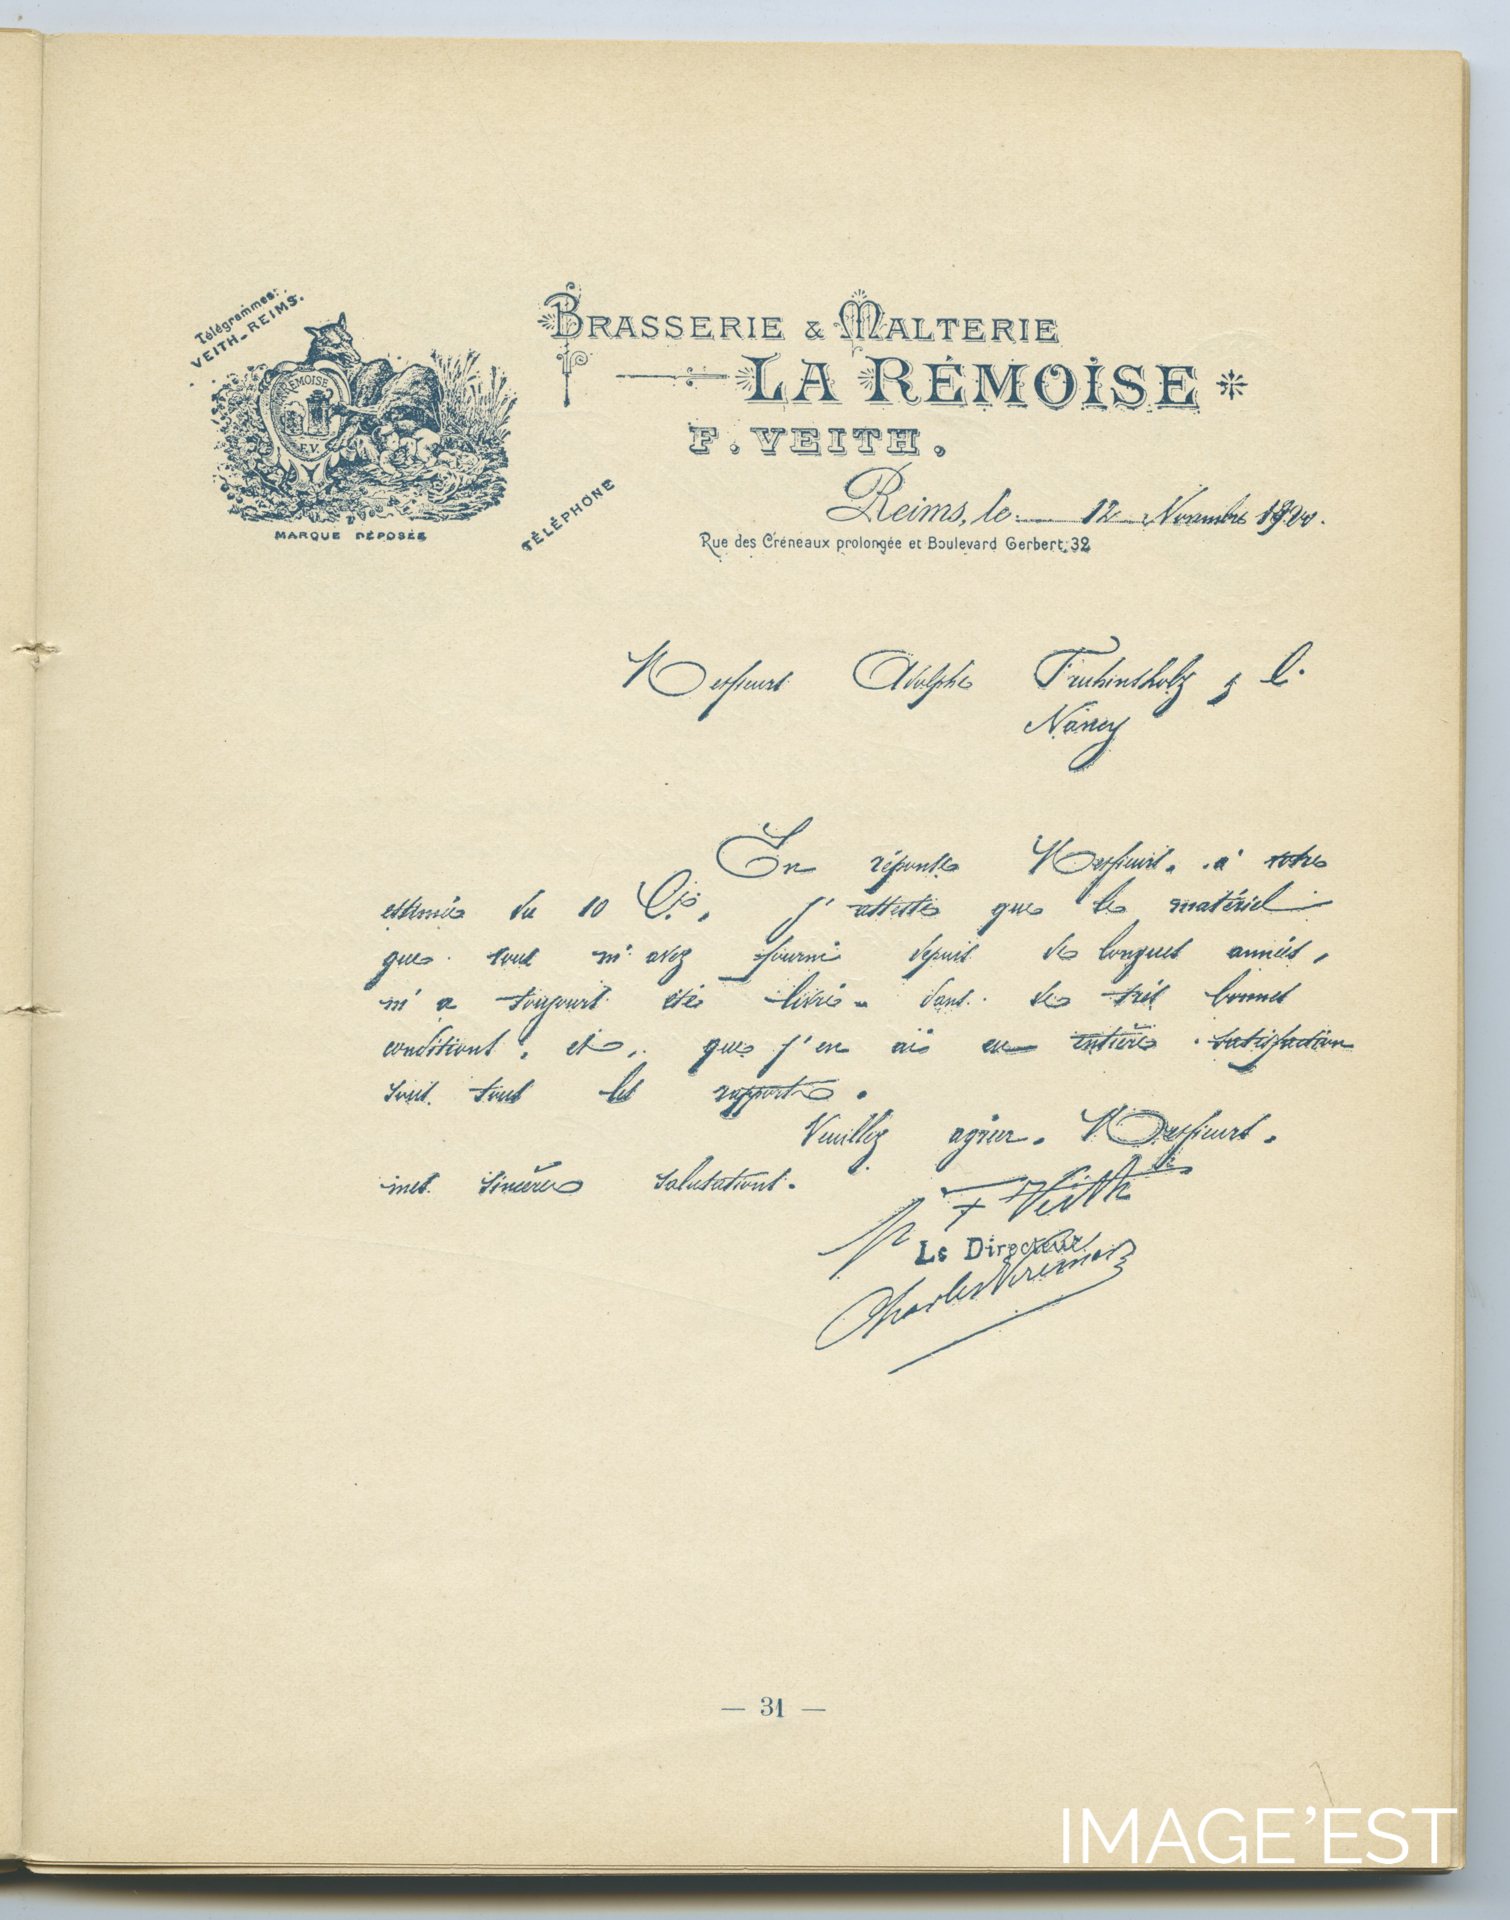 Télégrammes:
VEITH-REIMS.
RÉMOISE
F.V.
MARQUE DÉPOSÉE
TÉLÉPHONE
BRASSERIE & MALTERIE
LA RÉMOISE
F. VEITH.
Reims, le 12 Novembre
Rue des Créneaux prolongée et Boulevard Gerbert, 32
Messieurs Adolphe Fruhinsholz & C.
Nancy
En réponse Messieurs, à votre
estimée du 10 Ct, j'atteste que le matériel
que vous m'avez fourni depuis de longues années,
m'a toujours été livré dans de très bonnes
conditions, et, que j'en ai eu entière satisfaction
sous tous les rapports.
Veuillez agréer, Messieurs,
mes sincères salutations.
F Veith
Le Directeur
Charles
— 31 —
IMAGE'EST